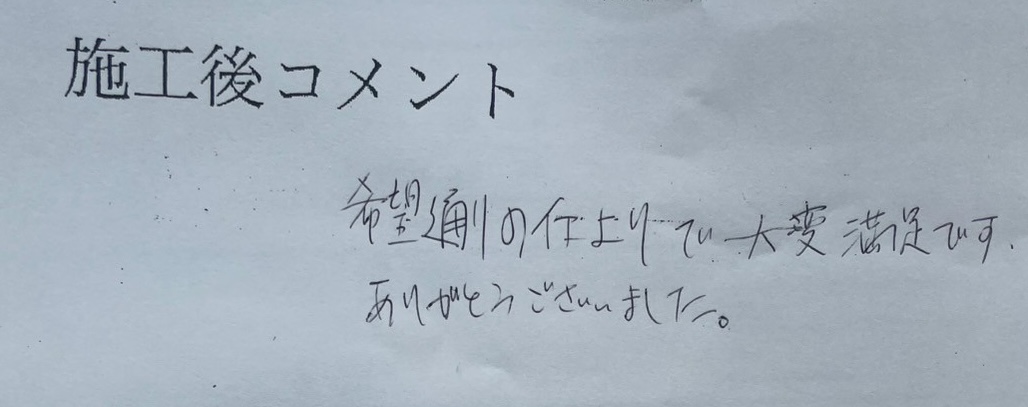 施工後コメント
希望通りの仕上りで大変満足です.
ありがとうございました。